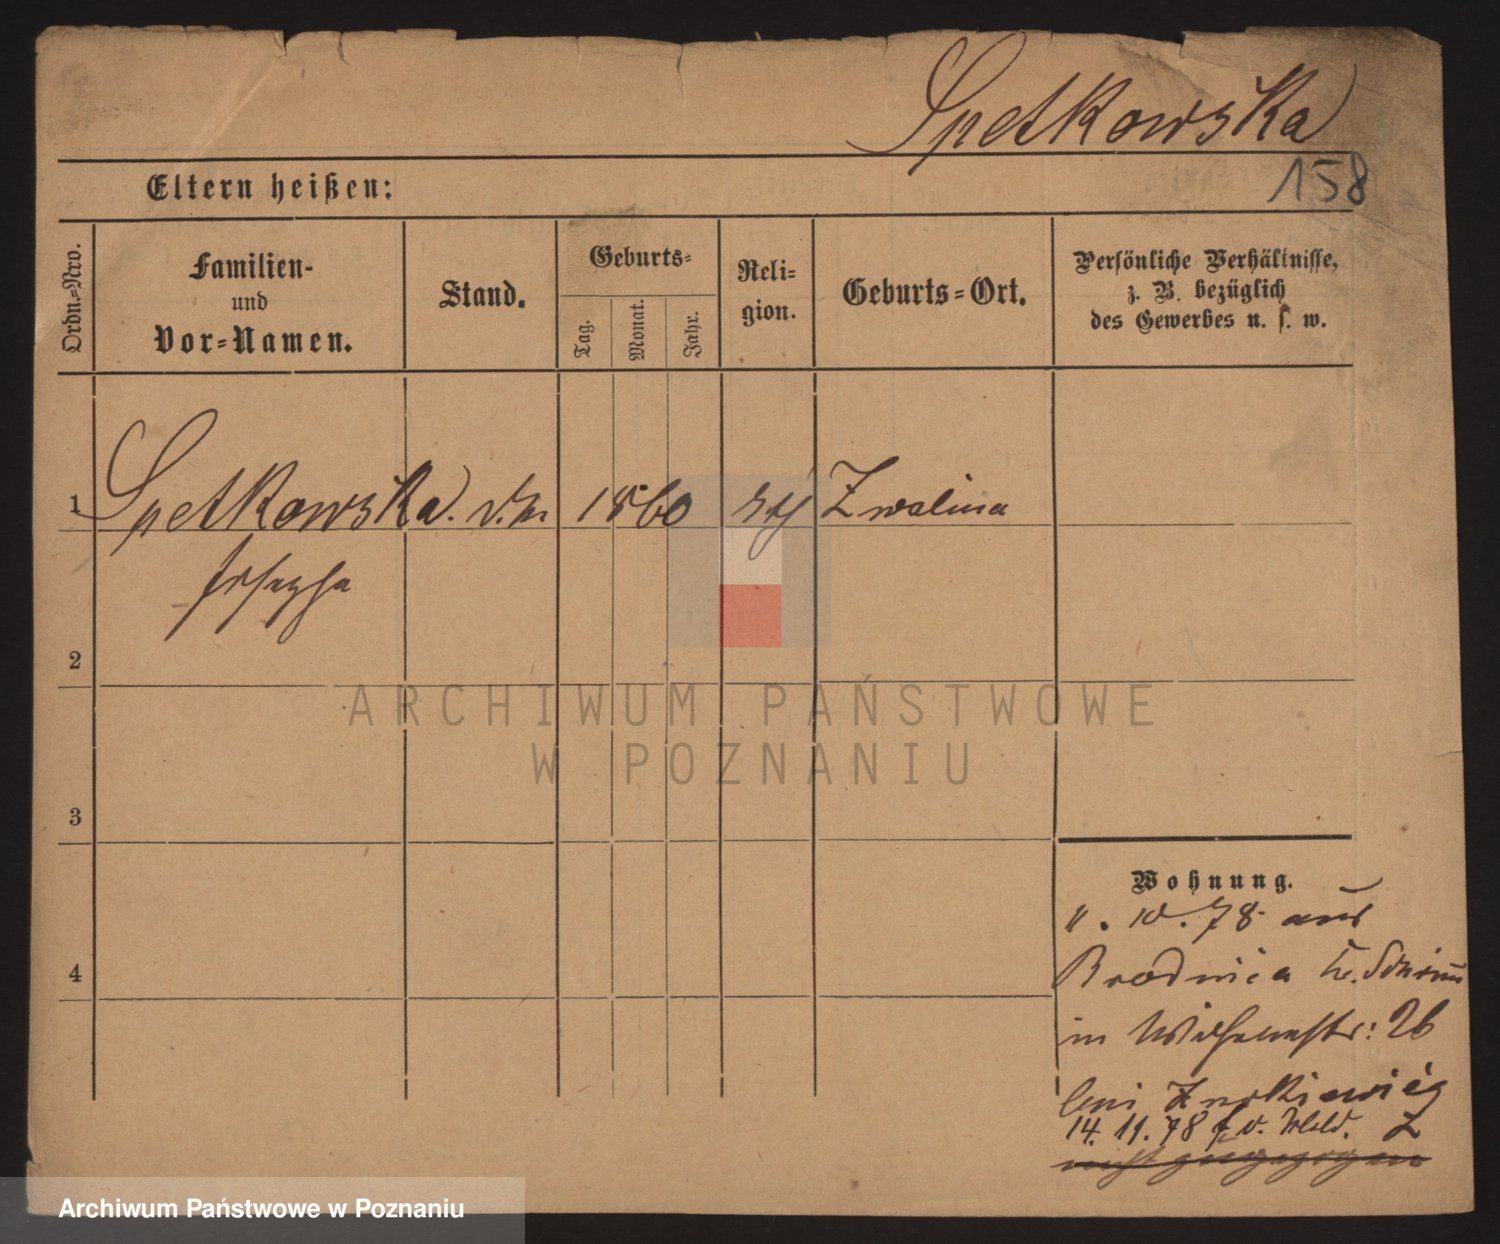 Spetkowska
158
Eltern heißen:
Ordn.-Nro.
Familien-
und
Vor-Namen.
Stand.
Geburts-
Tag.
Monat.
Jahr.
Reli-
gion.
Geburts-Ort.
Persönliche Verhältnisse,
z. B. bezüglich
des Gewerbes u. s. w.
1 Spetkowska 1860 Zwalina
Josepha
2
3
4
ARCHIWUM PAŃSTWOWE
W POZNANIU
Wohnung.
78 aus
Brodnica Kr. Schrimm
in Wilhelmstr: 26
bei
14. 11. 78
nicht zugezogen
Archiwum Państwowe w Poznaniu